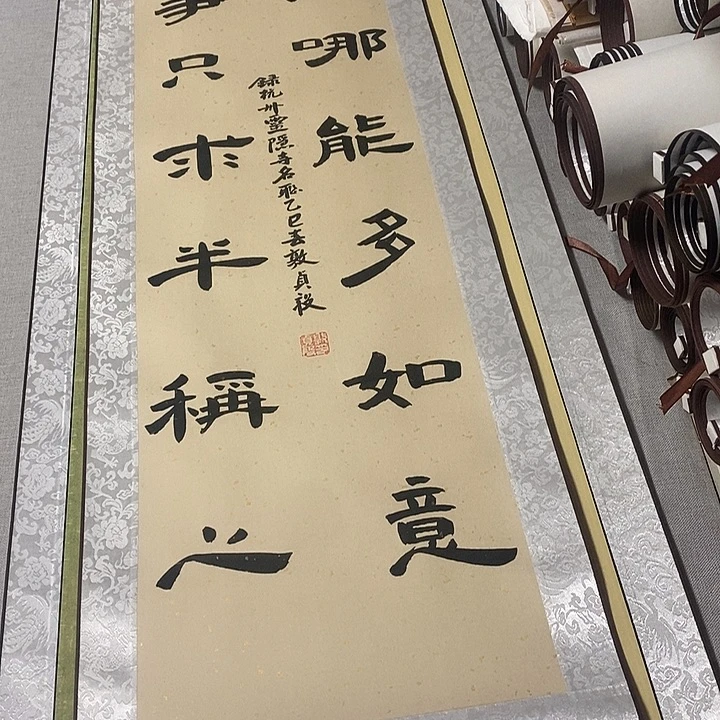 哪能多如意
事只求半稱心
錄杭州靈隱寺名聯乙巳春敦貞